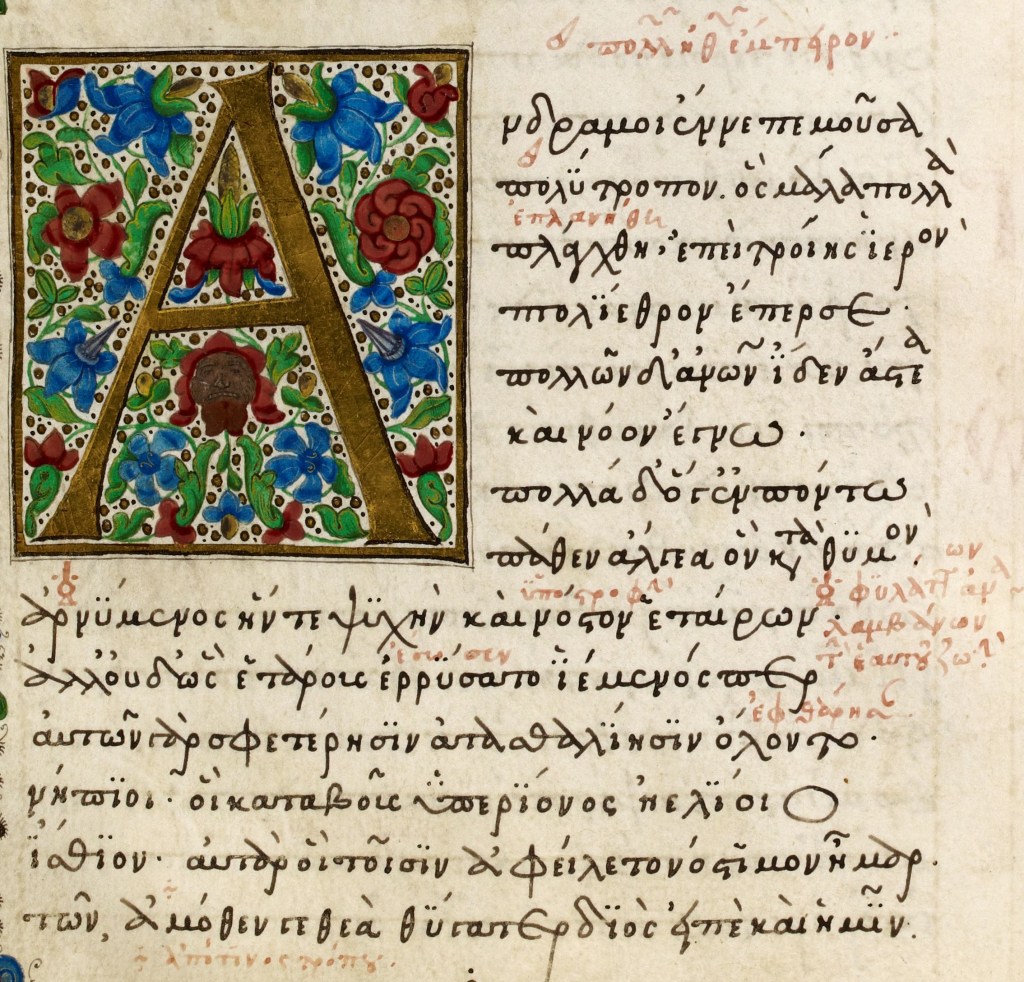 πολλῆ ἐμπῆρον
Α
νδρα μοι ἔννεπε μοῦσα
πολύτροπον. ὃς μάλα πολλὰ
ἐπλανήθη
πλάγχθη· ἐπεὶ τροίης ϊερὸν
πτολίεθρον ἔπερσε·
πολλῶν δ' ἀνθρώπων ἴδεν ἄστεα
καὶ νόον ἔγνω·
πολλὰ δ' ὅγ' ἐν πόντω
πάθεν ἄλγεα ὃν κατὰ θϋμόν.
ὑποστροφὴν
ἀρνϋμενος ἥν τε ψϋχὴν καὶ νόστον ἑταίρων·
φϋλάττων
λαμβάνων
ἔσωσεν
ἀλλ' οὐδ' ὧς ἑτάρους ἐρρύσατο ϊέμενός περ
ἐφθάρησαν
αὐτῶν γὰρ σφετέρησϊν ἀτασθαλΐησϊν ὄλοντο·
νήπϊοι· οἳ κατὰ βοῦς ϋπερΐονος ἠελΐοιο
ἤσθϊον· αὐτὰρ ὁ τοῖσϊν ἀφείλετο νόστϊμον ἦμαρ.
τῶν, ἀμόθεν γε θεὰ θύγατερ δϊὸς εἰπὲ καὶ ἡμῖν.
ἀπό τινος τρόπου.